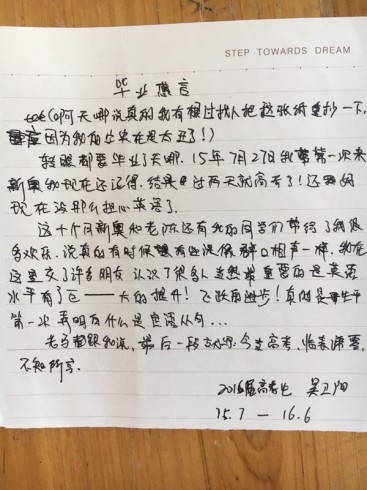 STEP TOWARDS DREAM
毕业撰言
(啊天哪说真的我有想过找人把这张纸重抄一下,
因为我的字实在是太丑了!)
转眼都要毕业了天哪. 15年7月27日我第一次来
新奥我现在还记得. 结果过两天就高考了! 还好
现在没那么担心英语了.
这十个月新奥和老陈还有我的同学们带给了我很
多欢乐. 说真的有时候相声一样. 我在
这里交了许多朋友 认识了很多人 当然最重要的是英语
水平有了巨——大的提升! 飞跃的进步! 真的是生平
第一次弄明白什么是定语从句...
老马跟我说, 最后一段
今高考, 临表涕零,
不知所言.
2016届高考生 吴卫阳
15.7 — 16.6